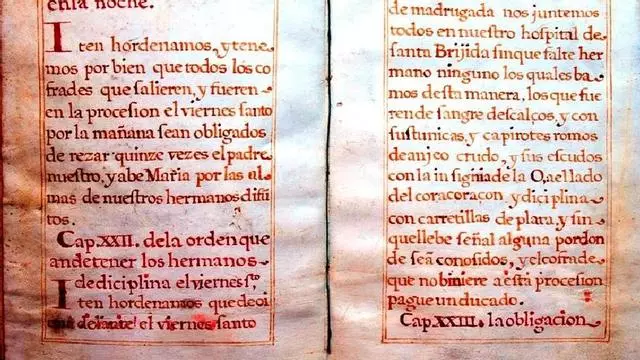 en la noche.
Iten hordenamos, y tene
mos por bien que todos los co
frades que salieren, y fueren
en la procesion el viernes santo
por la mañana sean obligados
de rezar quinze vezes el padre
nuestro, y abe Maria por las al
mas de nuestros hermanos difũ
tos.
Cap. XXII. dela orden que
an de tener los hermanos
de diciplina el viernes sto
Iten hordenamos que de oi
que delante el viernes santo
de madrugada nos juntemos
todos en nuestro hospital de
santa Brijida sin que falte her
mano ninguno los quales ba
mos desta manera, los que fue
ren de sangre descalços, y con
sus tunicas, y capirotes romos
de anjeo crudo, y sus escudos
con la insignia de la O, a el lado
del coracoraçon, y diciplina
con carretillas de plata, y sin
que llebe señal alguna por don
de seã conosidos, y el cofrade
que no biniere a esta procesion
pague un ducado.
Cap. XXIII. la obligacion